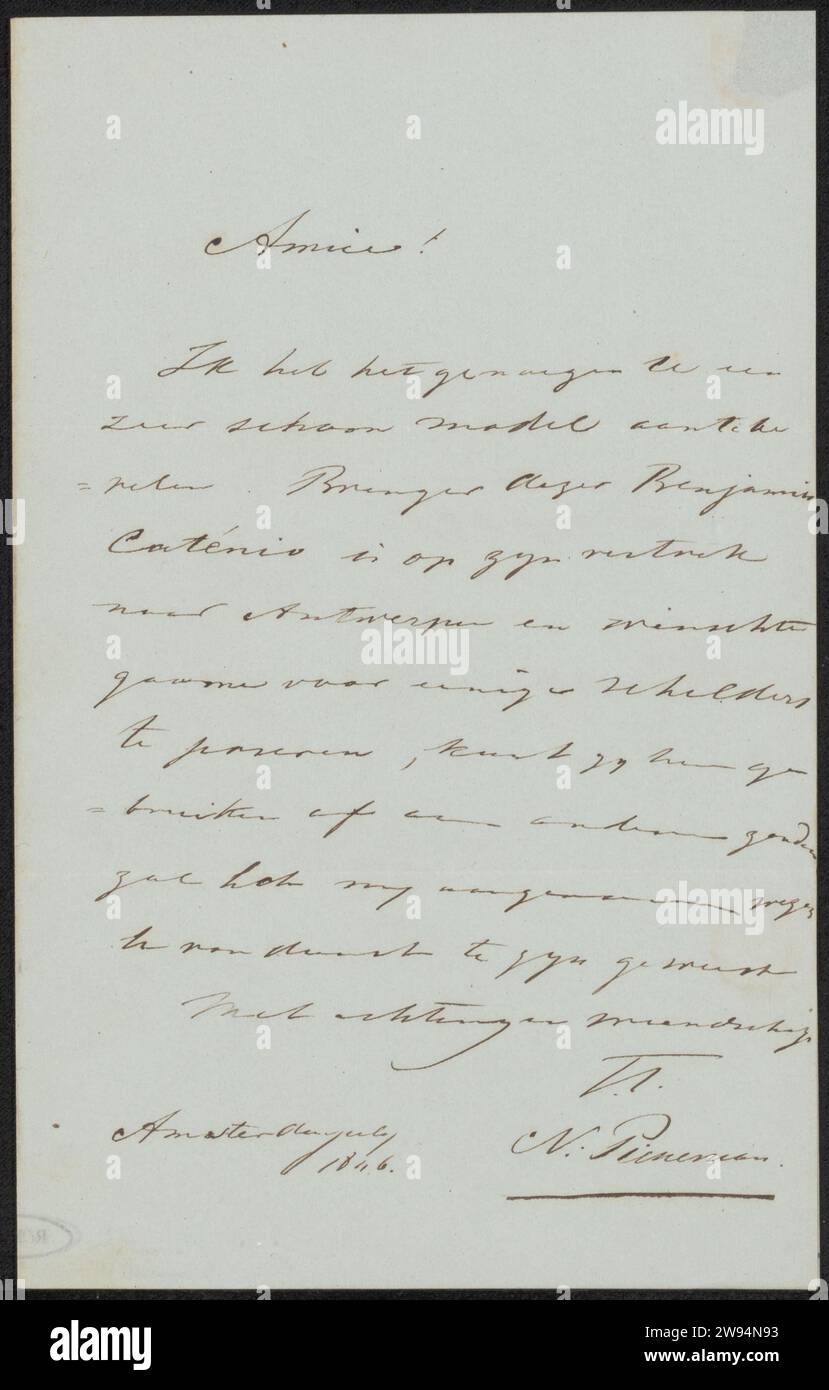 Amice!
Ik heb het genoegen U een
zeer schoon model aan te be
=velen. Brenger dezer Benjamin
Caténio is op zyn vertrek
naar Antwerpen en wenschte
gaarne voor eenige schilders
te poseren, kunt gy hem ge
=bruiken of aan anderen zenden
zal het my aangenaam wezen
U van dienst te zyn geweest
Met achting en vriendschap
T.T.
Amsterdam july
1846.
N. Pieneman.
alamy
a
alamy
Image ID: 2W94N93
www.alamy.com